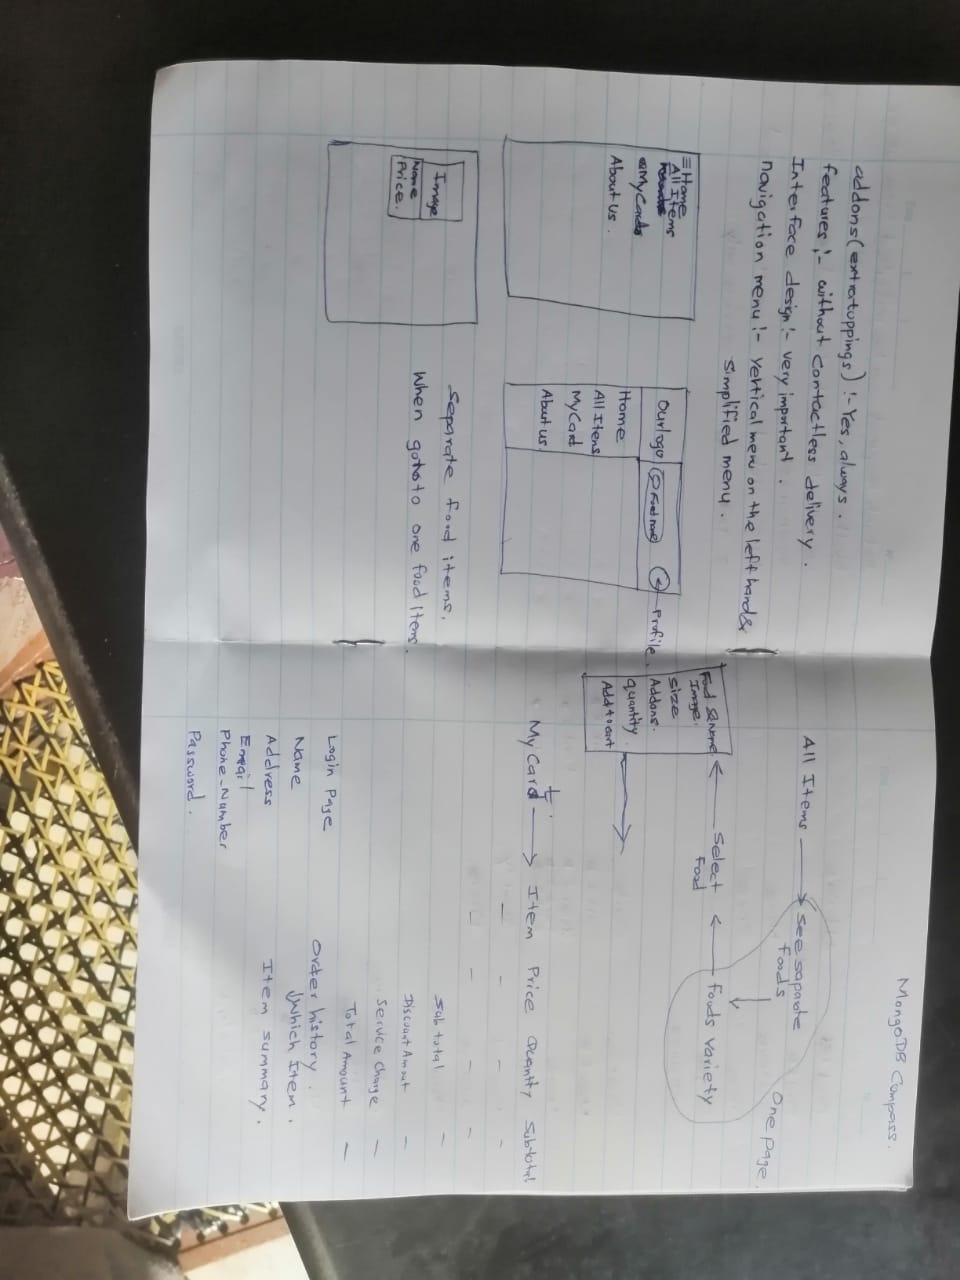 addons(extratoppings) :- Yes, always.
features :- without contactless delivery.
Interface design :- very important.
navigation menu :- vertical menu on the left hand &
simplified menu.
Home
All Items
My Cards
About Us.
Our logo
Food name
Profile.
Home
All Items
My Card
About us
Image
Name
Price.
Separate food items.
When goto to one food Items.
MongoDB Compass.
All Items
see saparate
foods
One page.
foods variety
Select
Food
Food & Name
Image.
size
Addons.
quantity
Add to cart
My Cart
Item Price Quantity Subtotal
- - - -
- - - -
Sub total -
Discount Amout -
Service Charge -
Total Amount -
Login Page
Name
Address
Email
Phone-Number
Password.
Order history.
Which Item.
Item summary.